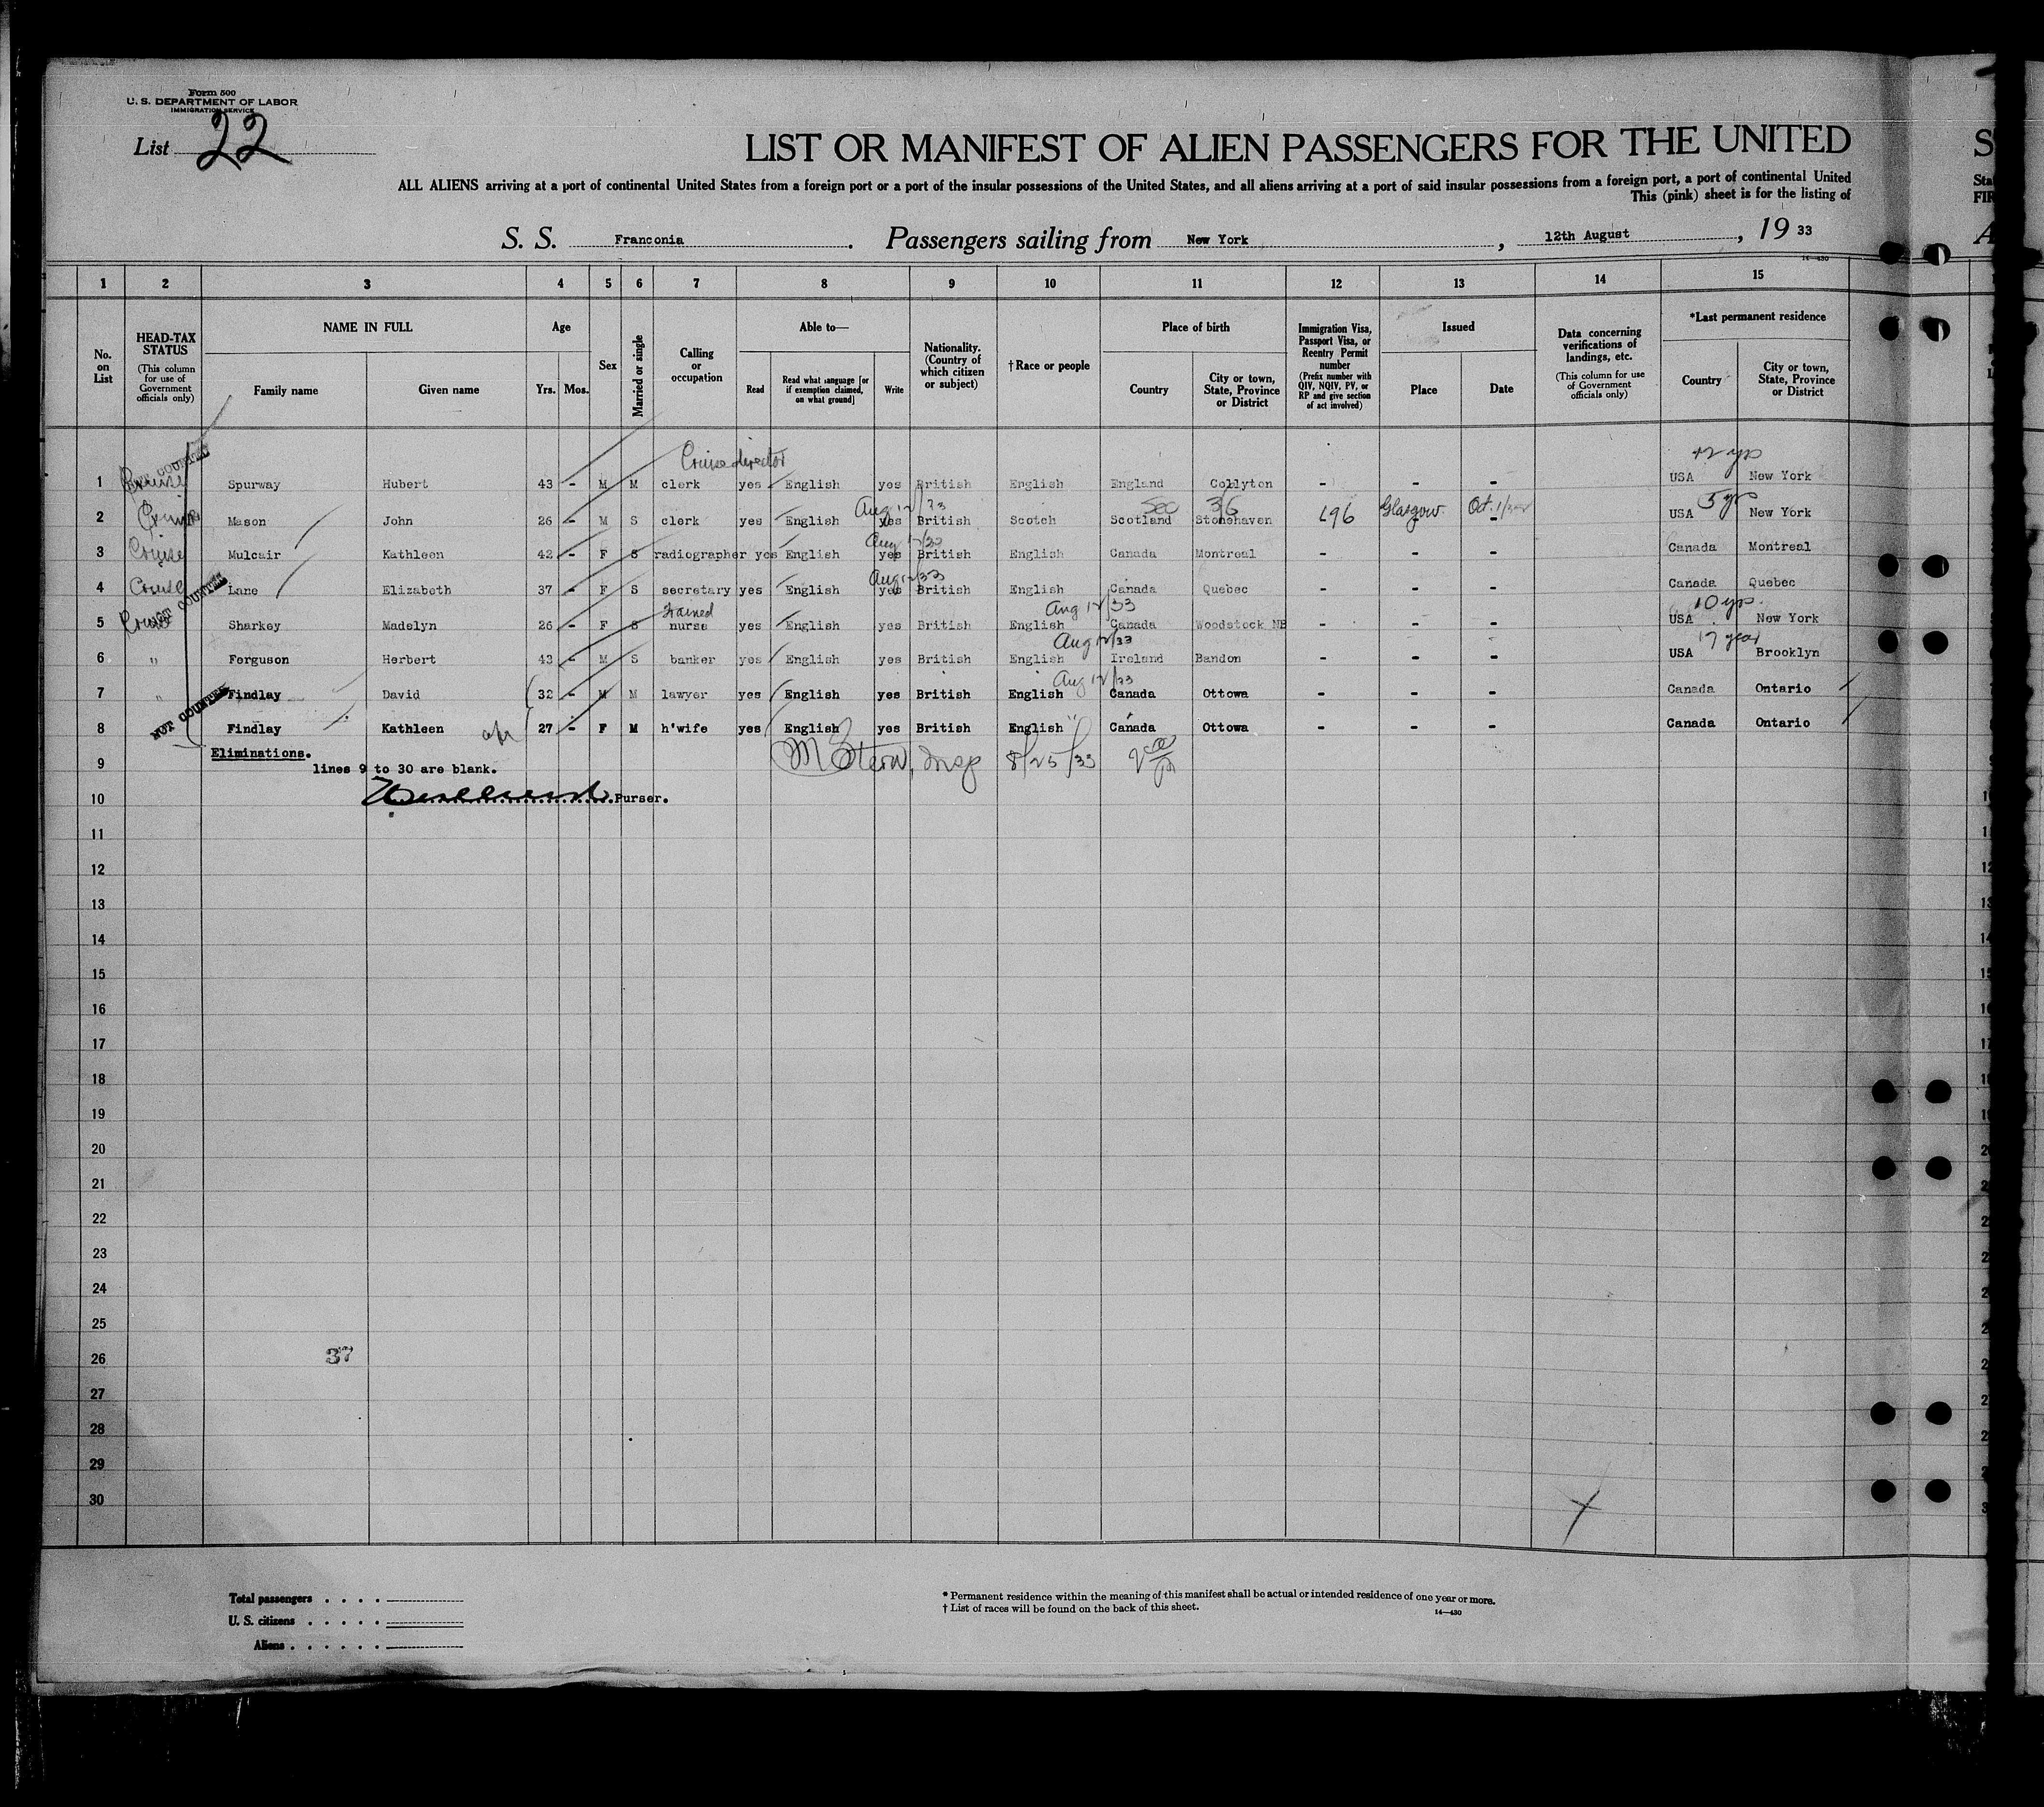 Form 500
U. S. DEPARTMENT OF LABOR
IMMIGRATION SERVICE
List 22
LIST OR MANIFEST OF ALIEN PASSENGERS FOR THE UNITED
ALL ALIENS arriving at a port of continental United States from a foreign port or a port of the insular possessions of the United States, and all aliens arriving at a port of said insular possessions from a foreign port, a port of continental United
This (pink) sheet is for the listing of
S. S. Franconia. Passengers sailing from New York, 12th August, 19 33
14—430
1 2 3 4 5 6 7 8 9 10 11 12 13 14 15
No. on List
HEAD-TAX STATUS (This column for use of Government officials only)
NAME IN FULL
Family name Given name
Age
Yrs. Mos.
Sex
Married or single
Calling or occupation
Able to—
Read Read what language [or if exemption claimed, on what ground] Write
Nationality. (Country of which citizen or subject)
†Race or people
Place of birth
Country City or town, State, Province or District
Immigration Visa, Passport Visa, or Reentry Permit number (Prefix number with QIV, NQIV, PV, or RP and give section of act involved)
Issued
Place Date
Data concerning verifications of landings, etc. (This column for use of Government officials only)
*Last permanent residence
Country City or town, State, Province or District
Cruise director
1 Cruise Spurway Hubert 43 - M M clerk yes English yes British English England Collyton - - - USA New York
Aug 12/33 Sec 36 5 yrs
2 Cruise Mason John 26 - M S clerk yes English yes British Scotch Scotland Stonehaven 196 Glasgow - Oct. - USA New York
Aug 12/33
3 Cruise Mulcair Kathleen 42 - F S radiographer yes English yes British English Canada Montreal - - - Canada Montreal
Aug 12/33
4 Cruise Lane Elizabeth 37 - F S secretary yes English yes British English Canada Quebec - - - Canada Quebec
NOT COUNTED
trained Aug 12/33 10 yrs.
5 Cruise Sharkey Madelyn 26 - F S nurse yes English yes British English Canada Woodstock NB - - - USA New York
Aug 12/33 17 year
6 " Ferguson Herbert 43 - M S banker yes English yes British English Ireland Bandon - - - USA Brooklyn
Aug 12/33
7 " Findlay David 32 - M M lawyer yes English yes British English Canada Ottowa - - - Canada Ontario
NOT COUNTED
8 Findlay Kathleen 27 - F M h'wife yes English yes British English Canada Ottowa - - - Canada Ontario
Eliminations.
9 lines 9 to 30 are blank.
M Stern, Insp 8/25/33
10 Purser.
11
12
13
14
15
16
17
18
19
20
21
22
23
24
25
26 37
27
28
29
30
Total passengers . . . .
U. S. citizens . . . . .
Aliens . . . . . .
* Permanent residence within the meaning of this manifest shall be actual or intended residence of one year or more.
† List of races will be found on the back of this sheet.
14—430